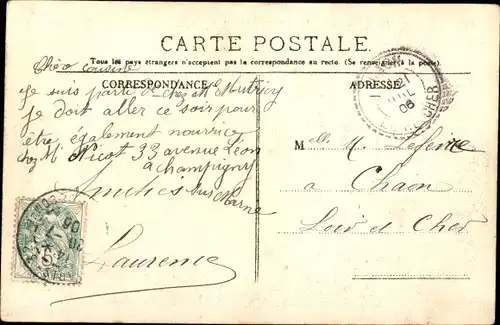 CARTE POSTALE
Tous les pays étrangers n'acceptent pas la correspondance au recto. (Se renseigner à la poste).
CORRESPONDANCE
ADRESSE
Chère cousine
Je suis parti de chez Me
Je doit aller ce soir pour
être également nourrice
chez M. Nicot 33 avenue Léon
a champigny
sur Marne
Laurence
Melle M.
a Chaon
Loir et Cher
JUIL
06
CHER
5